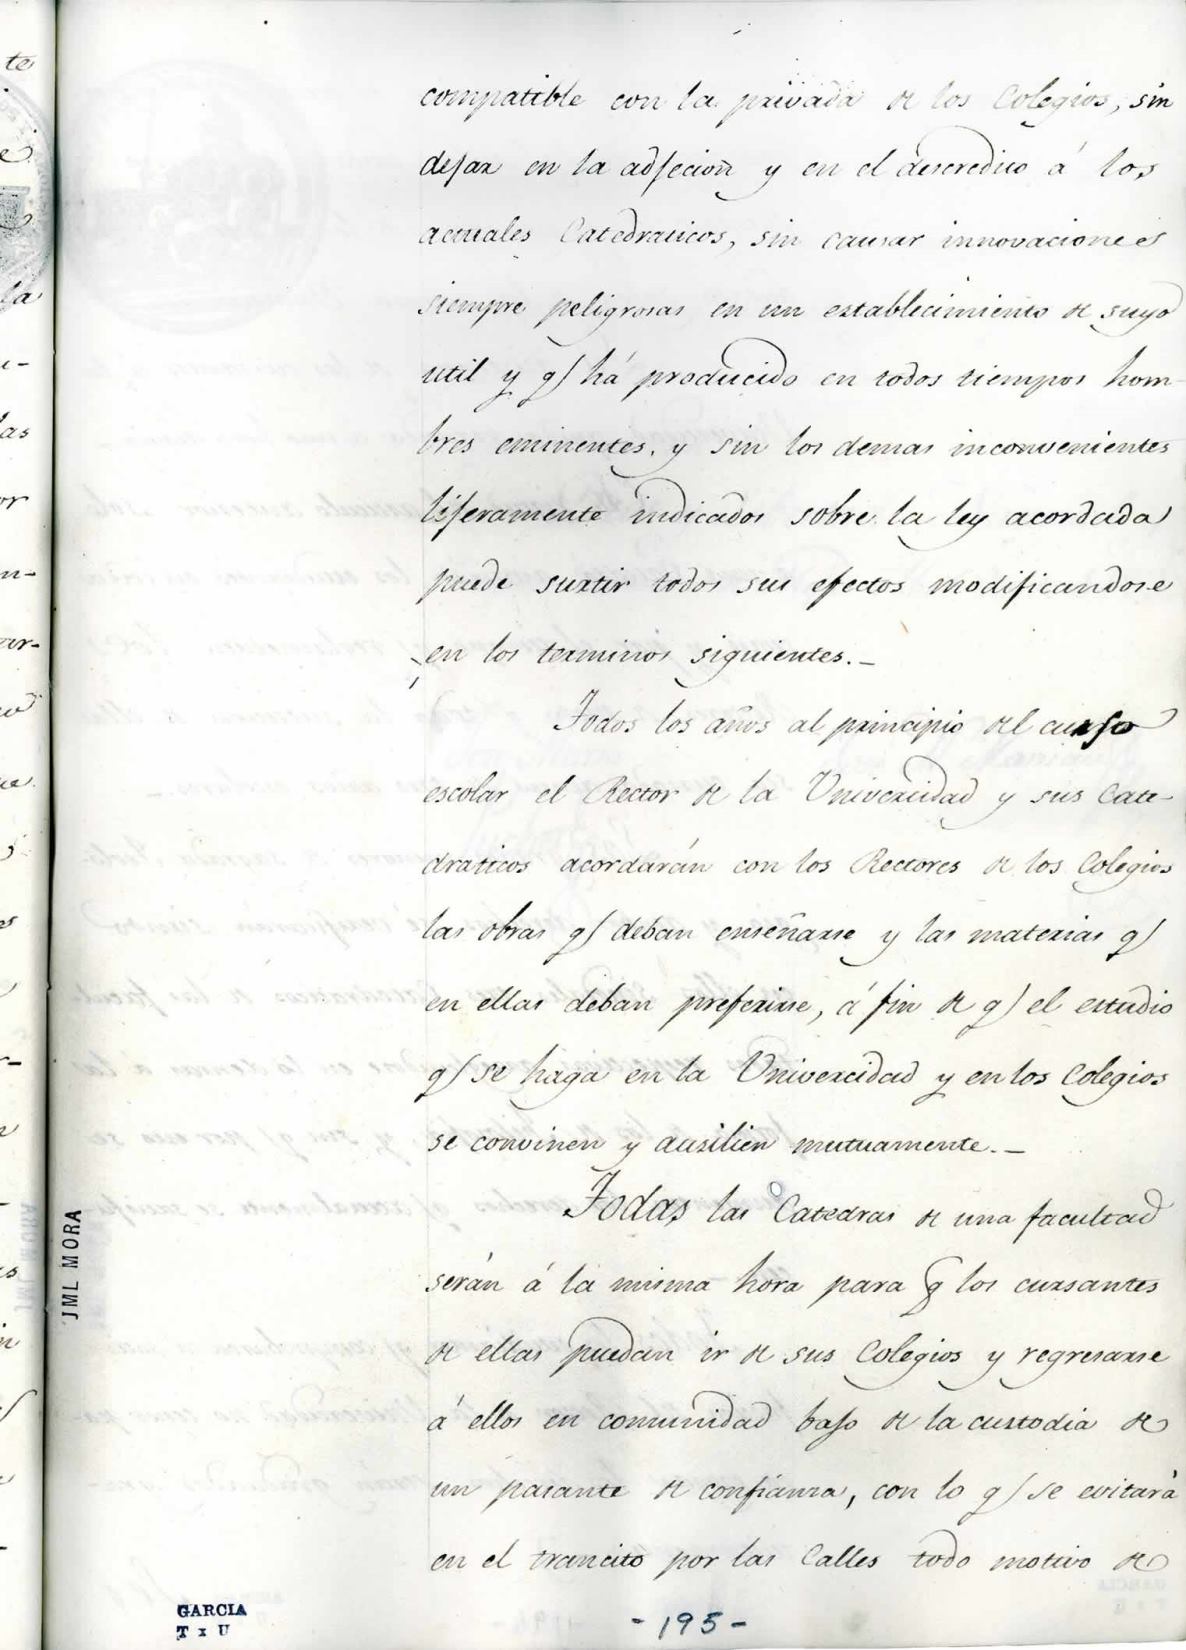 compatible con la privada de los Colegios, sin
dejar en la adjecion y en el descredito á los
actuales Catedraticos, sin causar innovaciones
siempre peligrosas en un establecimiento de suyo
util y q/ há producido en todos tiempos hom-
bres eminentes, y sin los demas inconvenientes
lijeramente indicados sobre la ley acordada
puede surtir todos sus efectos modificandose
en los terminos siguientes._
Todos los años al principio del curso
escolar el Rector de la Univercidad y sus Cate-
draticos acordarán con los Rectores de los Colegios
las obras q/ deban enseñarse y las materias q/
en ellas deban preferirse, á fin de q/ el estudio
q/ se haga en la Univercidad y en los Colegios
se convinen y ausilien mutuamente._
Todas las Catedras de una facultad
serán á la misma hora para q los cursantes
de ellas puedan ir de sus Colegios y regresarse
á ellos en comunidad bajo de la custodia de
un pasante de confianza, con lo q/ se evitará
en el trancito por las Calles todo motivo de
JML MORA
GARCIA
T x U
-195-